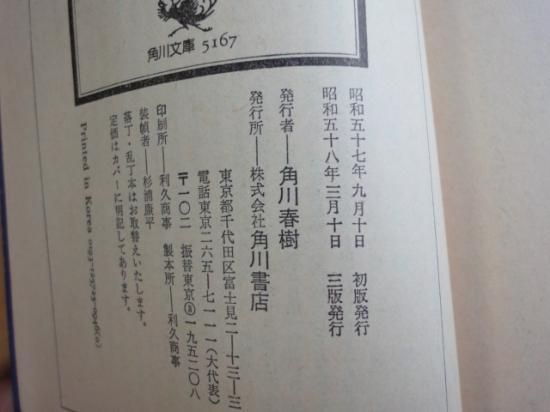 角川文庫 5167
昭和五十七年九月十日　初版発行
昭和五十八年三月十日　三版発行
発行者――角川春樹
発行所――株式会社角川書店
東京都千代田区富士見二―十三―三
電話東京二六五―七一一一(大代表)
〒一〇二　振替東京③一九五二〇八
印刷所――利久商事　製本所――利久商事
装幀者――杉浦康平
落丁・乱丁本はお取替えいたします。
定価はカバーに明記してあります。
Printed in Korea